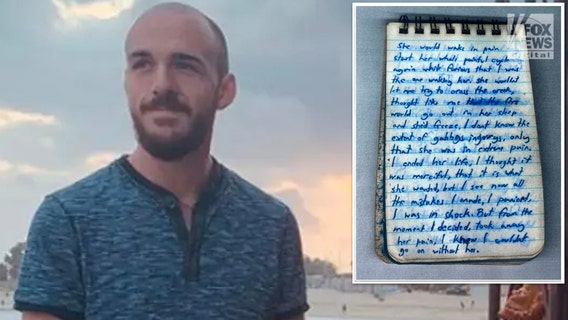 FOX
NEWS
digital
She would wake in pain
start her whole painful cycle
again while furious that I was
the one waking her. She wouldnt
let me try to cross the creek,
thought like me that the fire
would go out in her sleep
and she'd freeze. I dont know the
extent of injurys, only
that she was in extreme pain.
I ended her life, I thought it
was merciful, that it is what
she wanted, but I see now all
the mistakes I made. I panicked,
I was in shock. But from the
moment I decided, took away
her pain, I knew I wouldnt
go on without her.